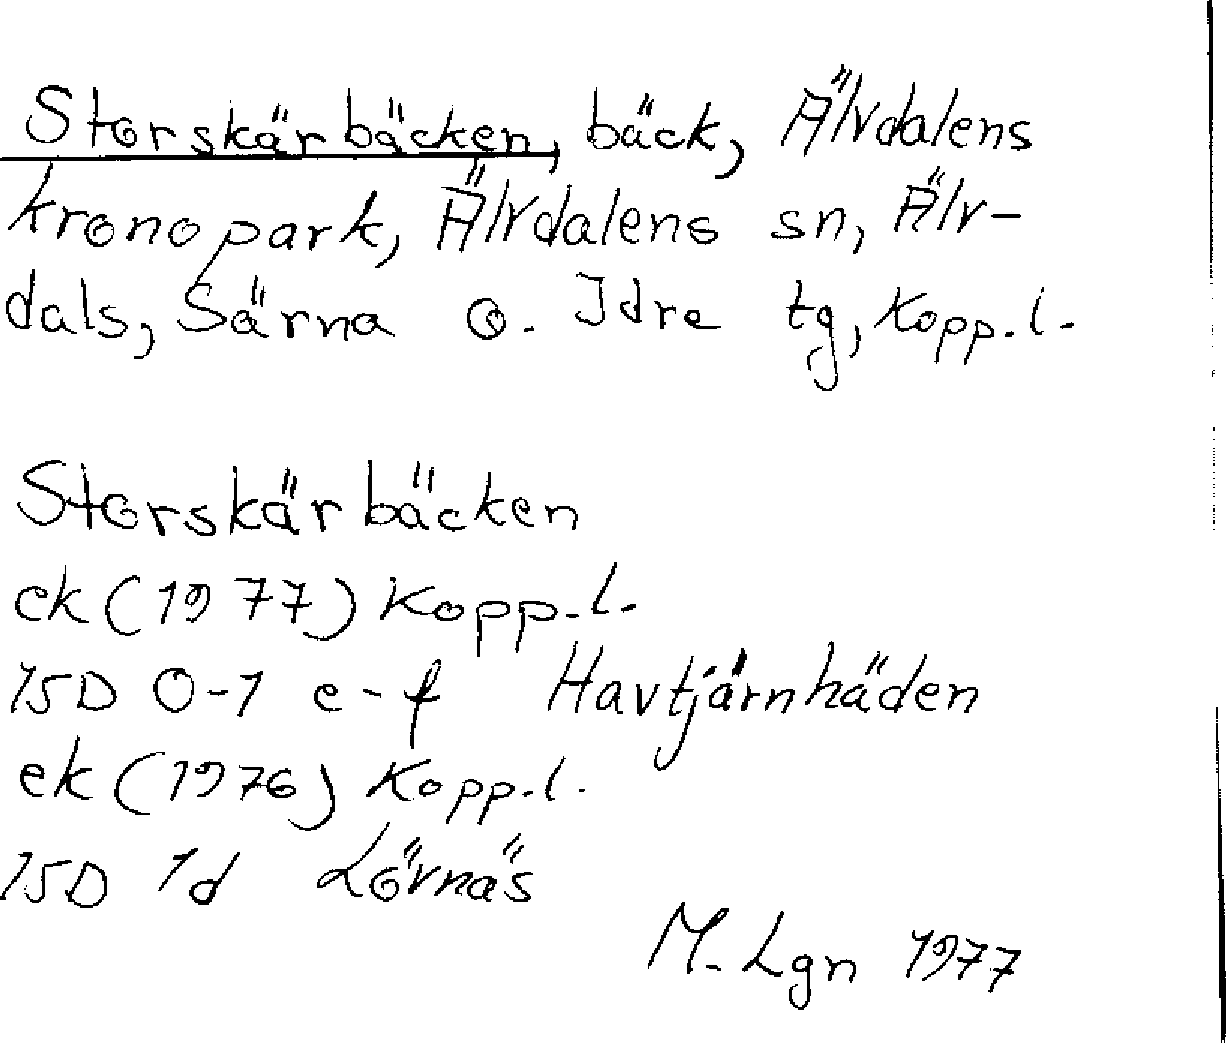 Storskärbäcken, bäck, Älvdalens
kronopark, Älvdalens sn, Älv-
dals, Särna o. Idre tg, Kopp.l.
Storskärbäcken
ek (1977) Kopp.l.
15D 0-1 e-f Havtjärnhäden
ek (1976) Kopp.l.
15D 1d Lövnäs
M. Lgn 1977